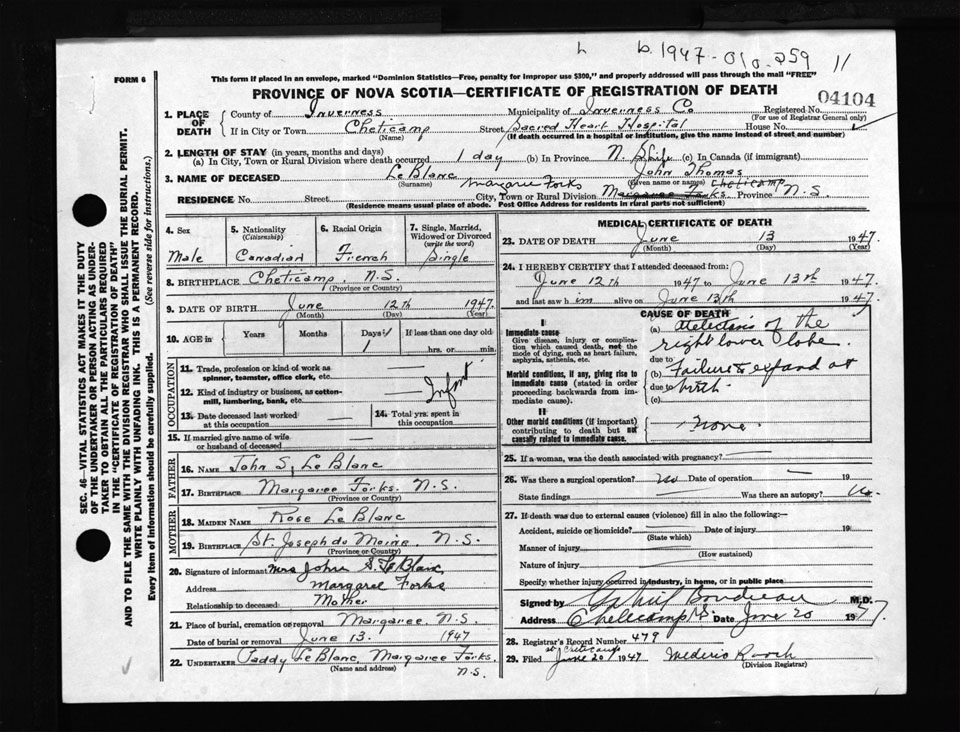 b. 1947-010-259 11
FORM 6
This form if placed in an envelope, marked "Dominion Statistics—Free, penalty for improper use $300," and properly addressed will pass through the mail "FREE"
PROVINCE OF NOVA SCOTIA—CERTIFICATE OF REGISTRATION OF DEATH
04104
SEC. 46—VITAL STATISTICS ACT MAKES IT THE DUTY
OF THE UNDERTAKER OR PERSON ACTING AS UNDER-
TAKER TO OBTAIN ALL THE PARTICULARS REQUIRED
IN THE "CERTIFICATE OF REGISTRATION OF DEATH"
AND TO FILE THE SAME WITH THE DIVISION REGISTRAR WHO SHALL ISSUE THE BURIAL PERMIT.
WRITE PLAINLY WITH UNFADING INK. THIS IS A PERMANENT RECORD.
Every item of information should be carefully supplied. (See reverse side for instructions.)
1. PLACE OF DEATH County of Inverness Municipality of Inverness Co Registered No.
(For use of Registrar General only)
If in City or Town Cheticamp Street Sacred Heart Hospital House No.
(Name) (If death occurred in a hospital or institution, give the name instead of street and number)
2. LENGTH OF STAY (in years, months and days)
(a) In City, Town or Rural Division where death occurred 1 day (b) In Province N. S. life (c) In Canada (if immigrant)
3. NAME OF DECEASED Le Blanc John Thomas
(Surname) (Given name or names)
Margaree Forks Cheticamp
RESIDENCE No. Street City, Town or Rural Division Margaree Forks Province N.S.
(Residence means usual place of abode. Post Office Address for residents in rural parts not sufficient)
4. Sex Male
5. Nationality (Citizenship) Canadian
6. Racial Origin French
7. Single, Married, Widowed or Divorced (write the word) Single
8. BIRTHPLACE Cheticamp, N.S.
(Province or Country)
9. DATE OF BIRTH June 12th 1947.
(Month) (Day) (Year)
10. AGE in Years Months Days 1 If less than one day old
hrs. or min.
OCCUPATION
11. Trade, profession or kind of work as spinner, teamster, office clerk, etc.
12. Kind of industry or business, as cotton-mill, lumbering, bank, etc. Infant
13. Date deceased last worked at this occupation
14. Total yrs. spent in this occupation
15. If married give name of wife or husband of deceased
FATHER
16. NAME John S. Le Blanc
17. BIRTHPLACE Margaree Forks N.S.
(Province or Country)
MOTHER
18. MAIDEN NAME Rose Le Blanc
19. BIRTHPLACE St. Joseph du Moine, N.S.
(Province or Country)
20. Signature of informant Mrs John S. Le Blanc
Address Margaree Forks
Relationship to deceased Mother
21. Place of burial, cremation or removal Margaree, N.S.
Date of burial or removal June 13. 1947
22. UNDERTAKER Paddy Le Blanc, Margaree Forks.
(Name and address) N.S.
MEDICAL CERTIFICATE OF DEATH
23. DATE OF DEATH June 13 1947
(Month) (Day) (Year)
24. I HEREBY CERTIFY that I attended deceased from:
June 12th 1947 to June 13th 1947.
and last saw him alive on June 13th 1947.
CAUSE OF DEATH
I
Immediate cause
Give disease, injury or complication which caused death, not the mode of dying, such as heart failure, asphyxia, asthenia, etc.
(a) Atelectasis of the right lower lobe.
due to
Morbid conditions, if any, giving rise to immediate cause (stated in order proceeding backwards from immediate cause).
(b) Failure to expand at
due to birth.
(c)
II
Other morbid conditions (if important) contributing to death but not causally related to immediate cause.
None.
25. If a woman, was the death associated with pregnancy?
26. Was there a surgical operation? No Date of operation 19
State findings Was there an autopsy? No.
27. If death was due to external causes (violence) fill in also the following:—
Accident, suicide or homicide? Date of injury 19
(State which)
Manner of injury
(How sustained)
Nature of injury
Specify whether injury occurred in industry, in home, or in public place
Signed by Gabriel Boudreau M.D.
Address Cheticamp N.S. Date June 20 1947
28. Registrar's Record Number 479
at Cheticamp
29. Filed June 20 1947 Mederic Roach
(Division Registrar)